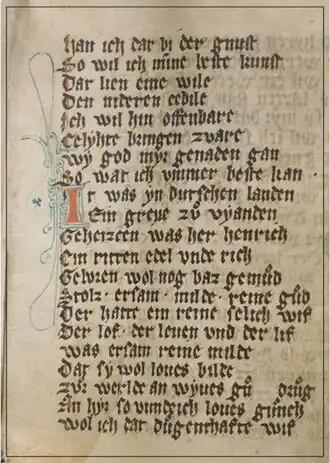 han ich dar bi der gunst
So wil ich mine beste kunst
Dar lien eine wile
Den nideren
Ich wil hin offenbare
brengen zware
Wy god myr genaden gan
So war ich ummer beste kan
Ir was yn dutschen landen
Ein greve zů vyanden
Geheizcen was her henrich
Ein ritter edel unde rich
Gewizen wol nog baz gemůd
Stolz · ersam · milde · reine gůd
Der hatte ein reine selich wif
Der lof · der leven und der lif
was ersam reine milde
Dat sy wol loves bilde
zůr werlde an wyves gů drůg
An hyr so vundich loves gnůch
wol ich dat důgenthafte wif